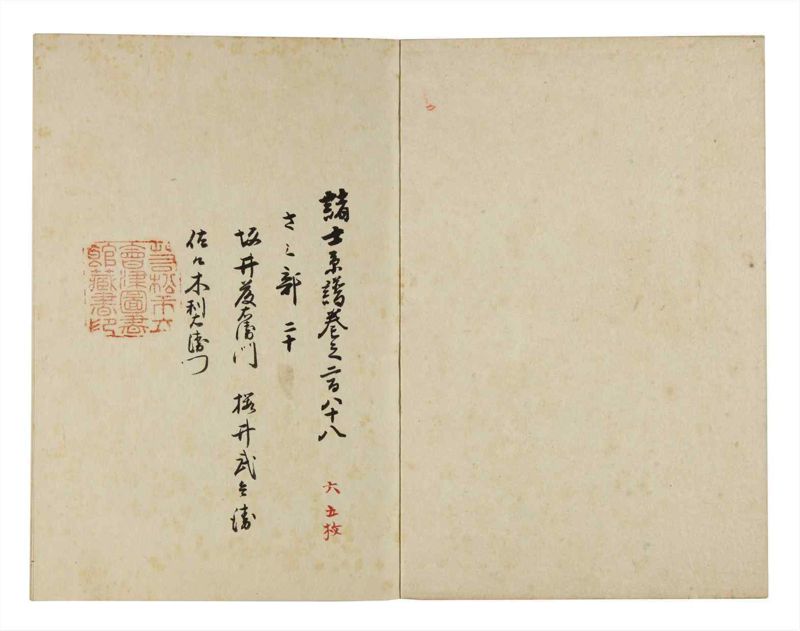 諸士系譜巻之二百八十八
六五枚
さ之部 二十
坂井藤右衛門 桜井武兵衛
佐々木利右衛門
若松市立
會津圖書
館藏書印